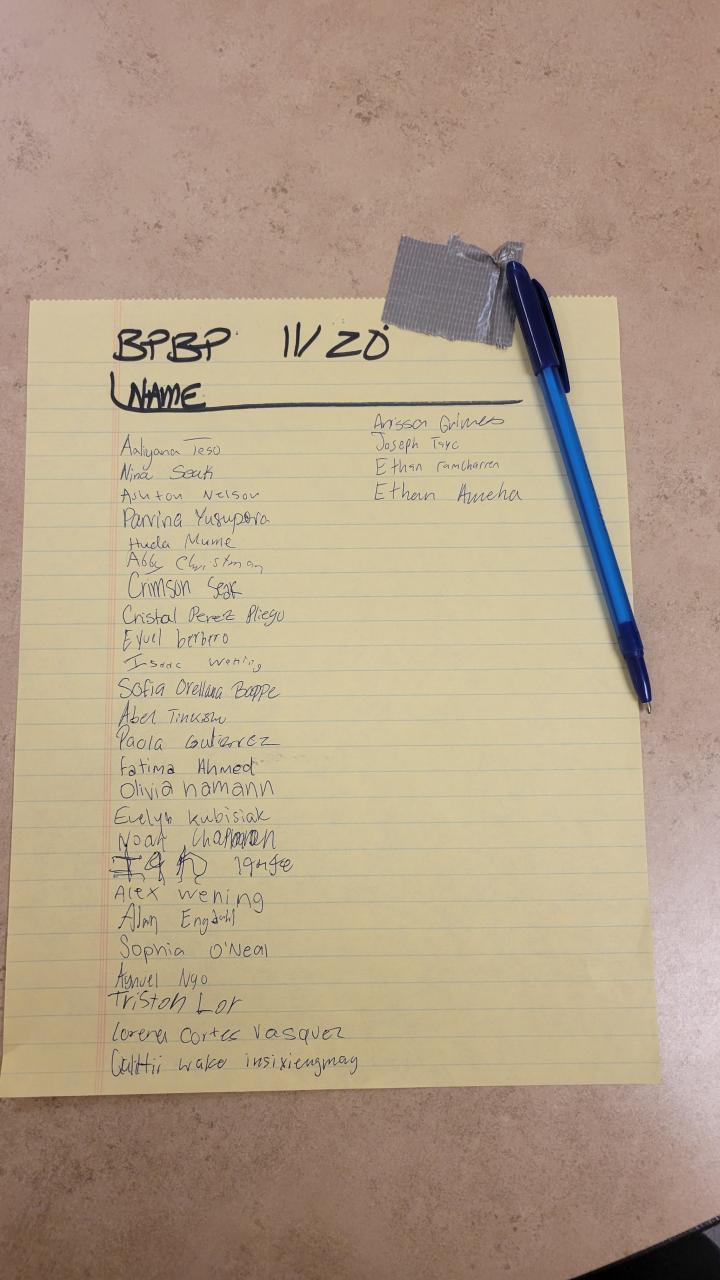 BPBP 11/20
NAME
Aaliyana Teso
Nina Seak
Ashton Nelson
Parvina Yusupova
Huda Mume
Abby Christman
Crimson Seak
Cristal Perez Pliego
Eyuel berbero
Isaac Wening
Sofia Orellana
Abel
Paola Gutierrez
Fatima Ahmed
Olivia hamann
Evelyn Kubisiak
Noah Chapman
Alex Wening
Alan Engdahl
Sophia O'Neal
Ngo
Triston Lor
Lorena Cortes Vasquez
wake insixiengmay
Grimes
Joseph
Ethan ramcharren
Ethan Ameha